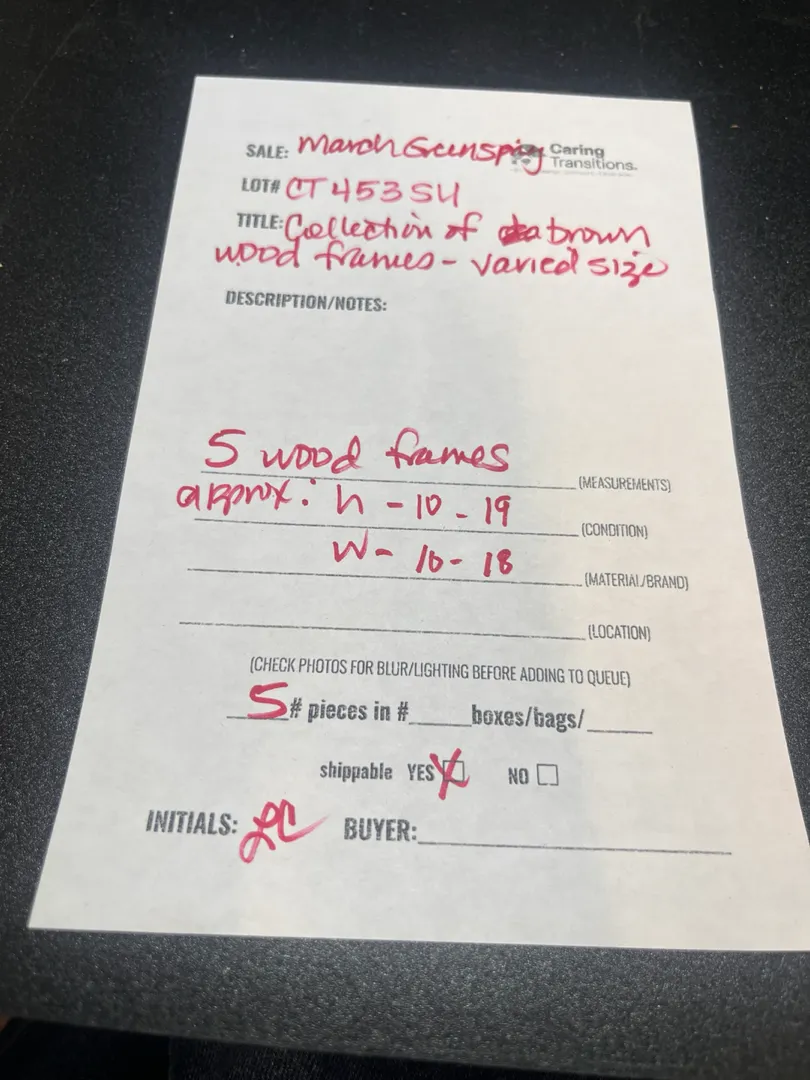 SALE: March Greenspring Caring Transitions.
LOT# CT453SU
TITLE: Collection of brown
wood frames - varied size
DESCRIPTION/NOTES:
5 wood frames (MEASUREMENTS)
approx: h - 10 - 19 (CONDITION)
W - 10 - 18 (MATERIAL/BRAND)
(LOCATION)
(CHECK PHOTOS FOR BLUR/LIGHTING BEFORE ADDING TO QUEUE)
5 # pieces in #____boxes/bags/____
shippable YES X NO
INITIALS: LC BUYER: